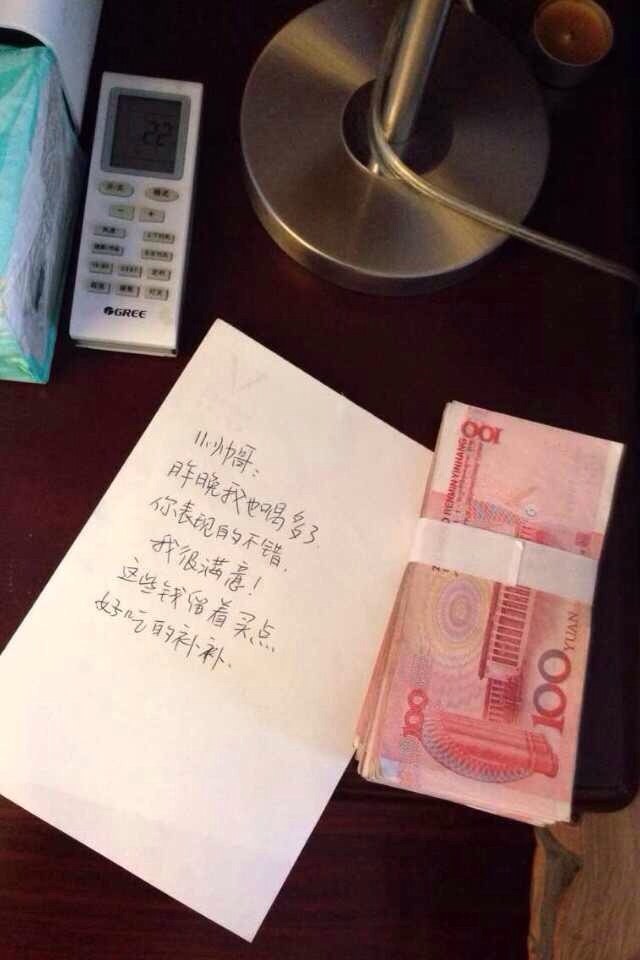 22
GREE
小帅哥：
昨晚我也喝多了.
你表现的不错.
我很满意！
这些钱留着买点
好吃的补补.
100
RENMIN YINHANG
100
YUAN
100